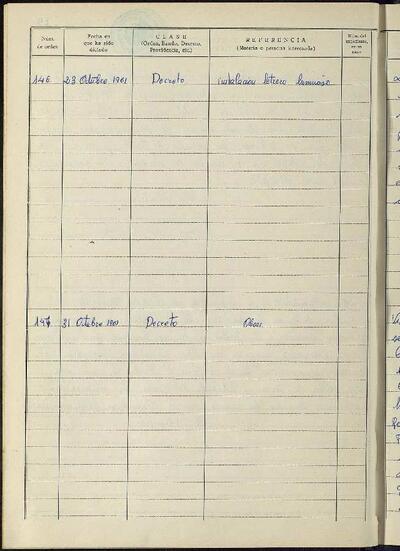 Núm. de orden
Fecha en que ha sido dictado
CLASE
(Orden, Bando, Decreto, Providencia, etc.)
REFERENCIA
(Materia o persona interesada)
Núm. del
146 23 Octubre 1981 Decreto instalacion letrero luminoso
147 31 Octubre 1981 Decreto Obras